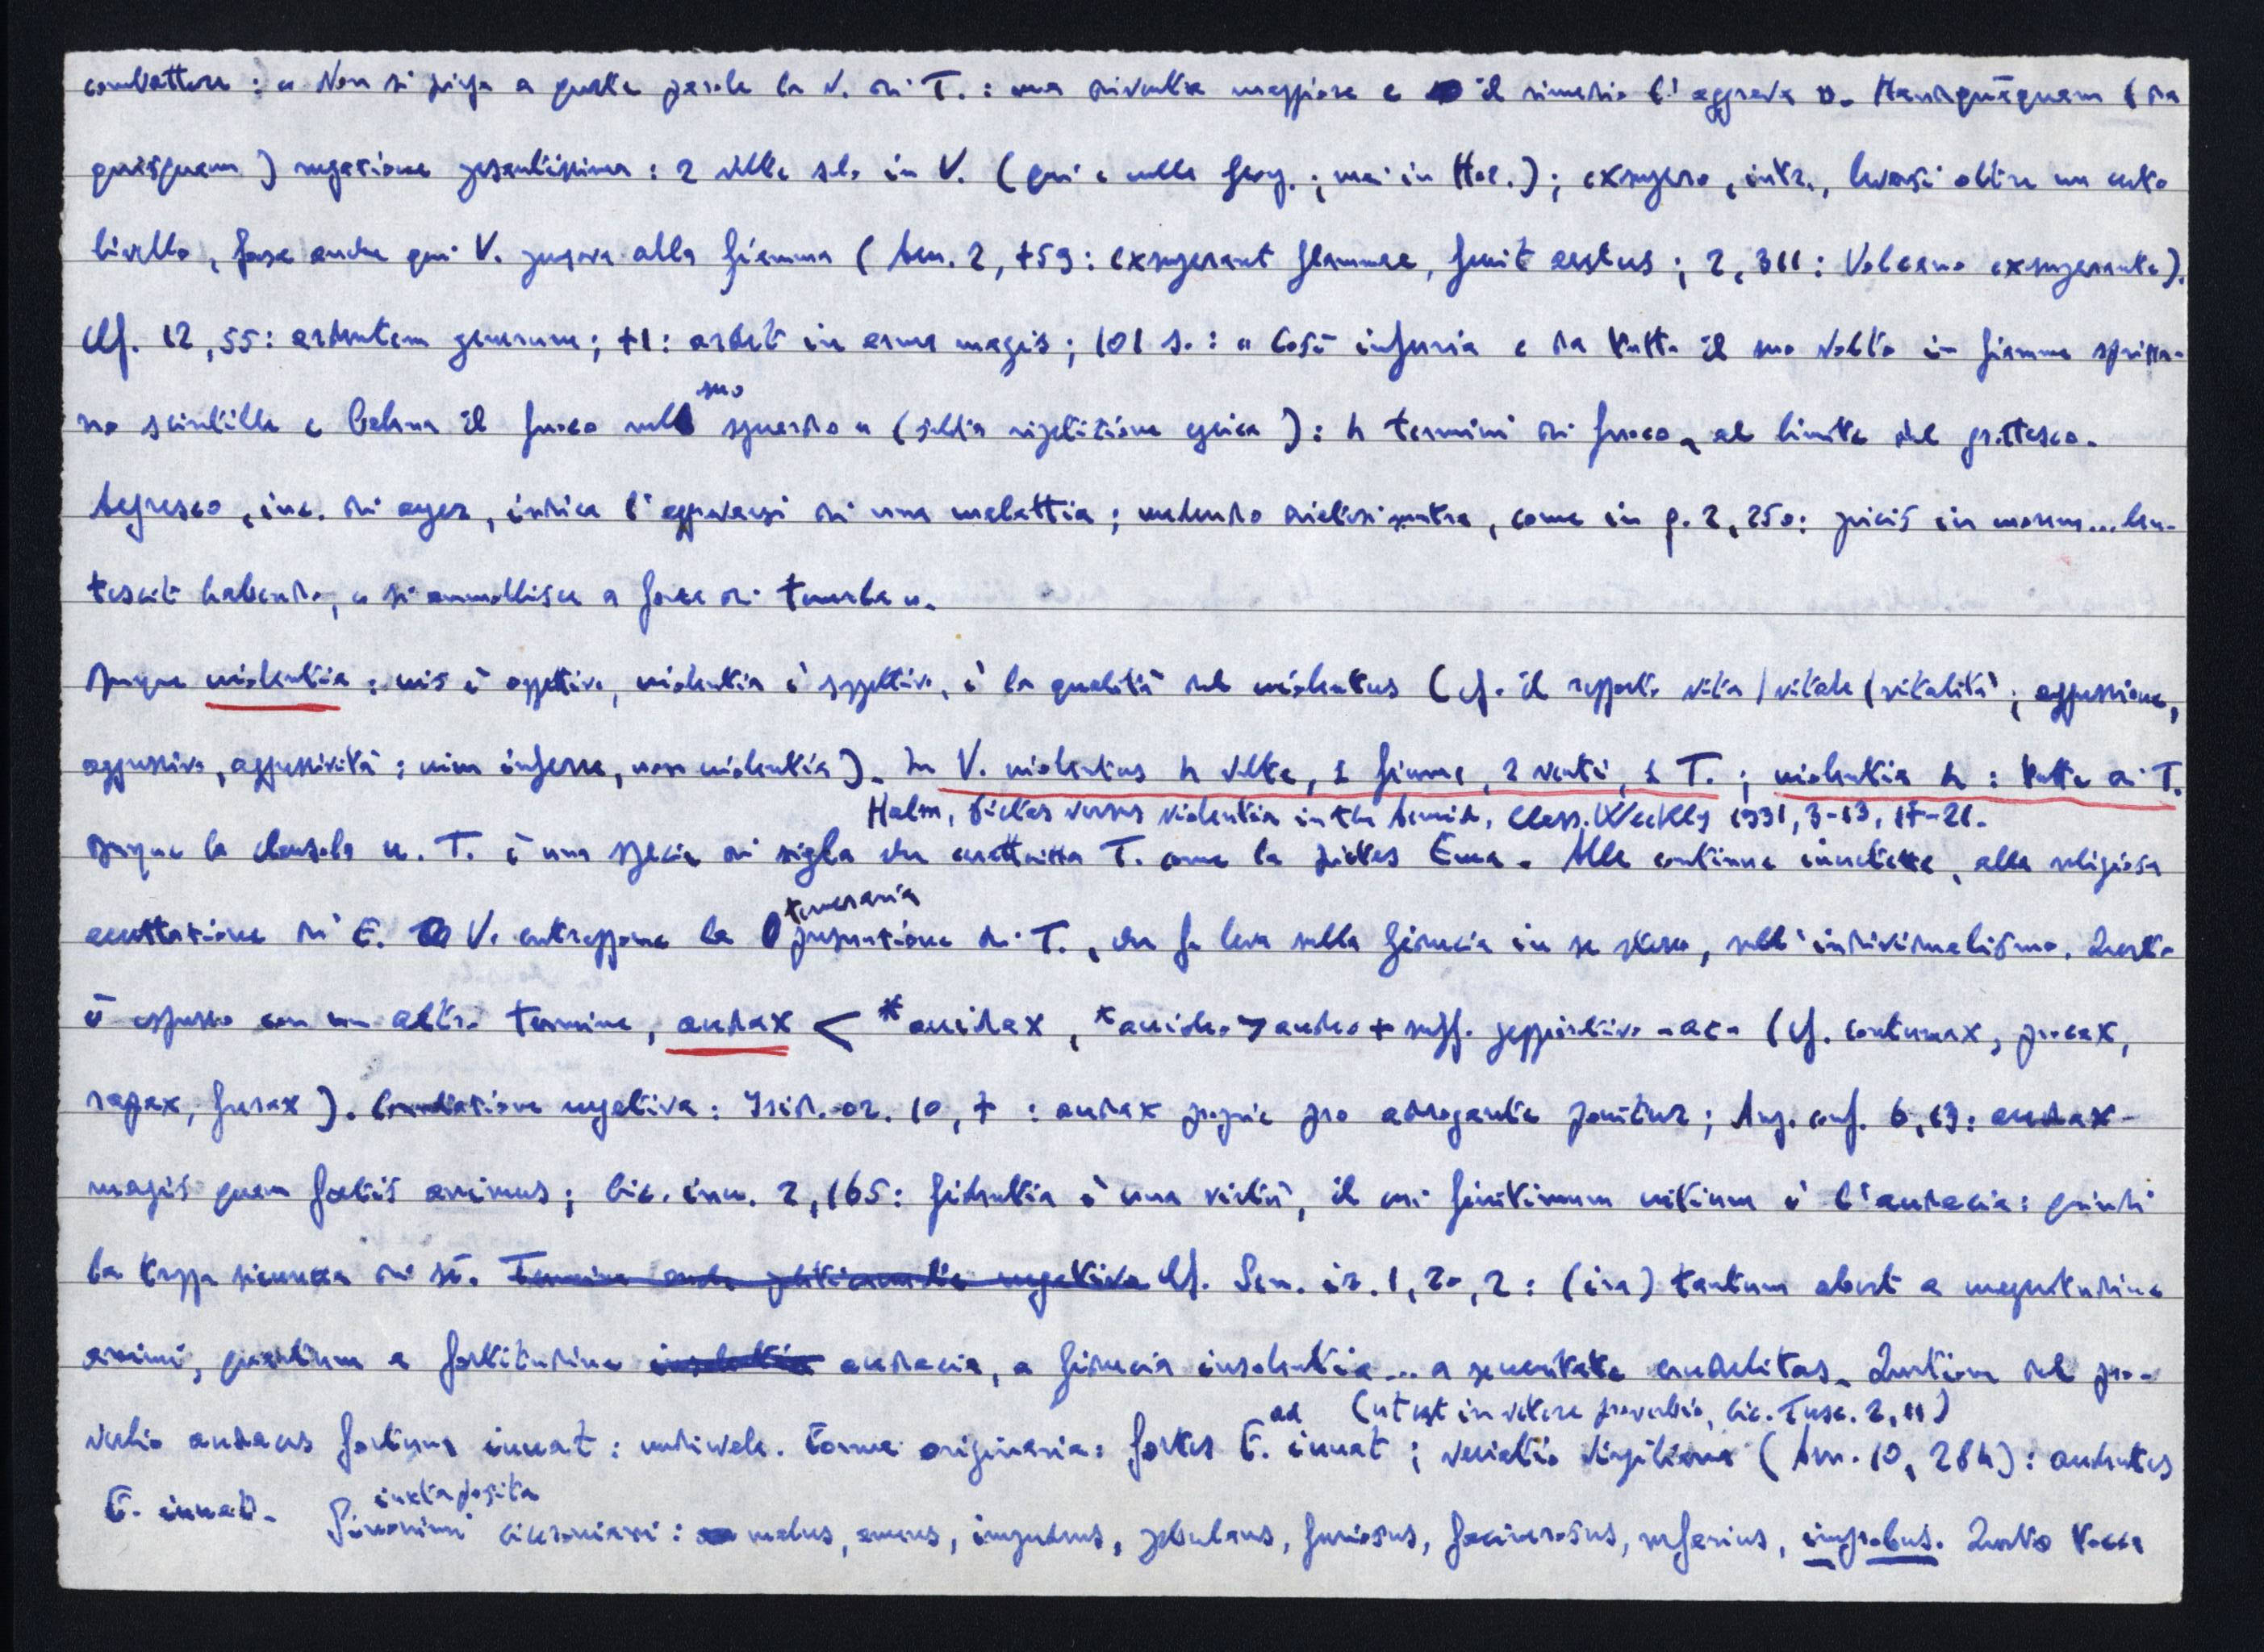 combattere : « Non si piega a queste parole la v. di T. : ma diventa maggiore e il rimedio l'aggrava ». Haudquāquam (da
quisquam) negazione pesantissima : 2 volte solo in V. (qui e nelle Georg. ; mai in Hor.) ; exsupero, intr., levarsi oltre un certo
livello, forse anche qui V. pensava alla fiamma (Aen. 2, 759: exsuperant flammae, furit aestus ; 2, 311: Volcano exsuperante).
Cf. 12, 55: ardentem generum ; 71: ardet in arma magis ; 101 s. : « Così infuria e da tutto il suo volto in fiamme sprizza-
no scintille e balena il fuoco nel suo sguardo » (solita ripetizione epica) : 4 termini di fuoco, al limite del grottesco.
Aegresco, inc. di aeger, indica l'aggravarsi di una malattia ; medendo , come in g. 2, 250: picis in morem... len-
tescit habendo, « si ammollisce a forza di tenerla ».
Dunque violentia : vis è oggettivo, violentia è soggettivo, è la qualità del violentus (cf. il rapporto vita / vitale / vitalità ; aggressione,
aggressivo, aggressività : vim inferre, non violentia). In V. violentus 4 volte, 1 fiume, 2 venti, 1 T. ; violentia 4 : tutte di T.
Hahn, Pietas versus violentia in the Aeneid, Class. Weekly 1931, 9-13, 17-21.
Dunque la clausola v. T. è una specie di sigla che caratterizza T. come la pietas Enea. Alla continua , alla religiosa
accettazione di E. V. contrappone la temeraria presunzione di T., che fa leva sulla fiducia in se stesso, sull'individualismo. Questo
è espresso con un altro termine, audax < *avidax, *avideo > audeo + suff. peggiorativo -ac- (cf. contumax, procax,
rapax, furax). Connotazione negativa : Isid. or. 10, 7 : audax proprie pro adrogante ponitur ; Aug. conf. 6, 13: audax
magis quam fortis animus ; Cic. inv. 2, 165: fidentia è una virtù, il cui finitimum vitium è l'audacia : quindi
la troppa sicurezza di sé. Termine anche politicamente negativo Cf. Sen. ir. 1, 20, 2 : (ira) tantum abest a magnitudine
animi, quantum a fortitudine insolentia audacia, a fiducia insolentia... a severitate crudelitas. Questione del pro-
verbio audaces fortuna iuvat : medievale. Forma originaria : fortes F. adiuvat (ut est in vetere proverbio, Cic. Tusc. 2, 11) ; variatio virgiliana (Aen. 10, 284) : audentes
F. iuvat. Sinonimi iuxtaposita ciceroniani : malus, amens, impudens, petulans, furiosus, facinerosus, nefarius, improbus. Questo tocca